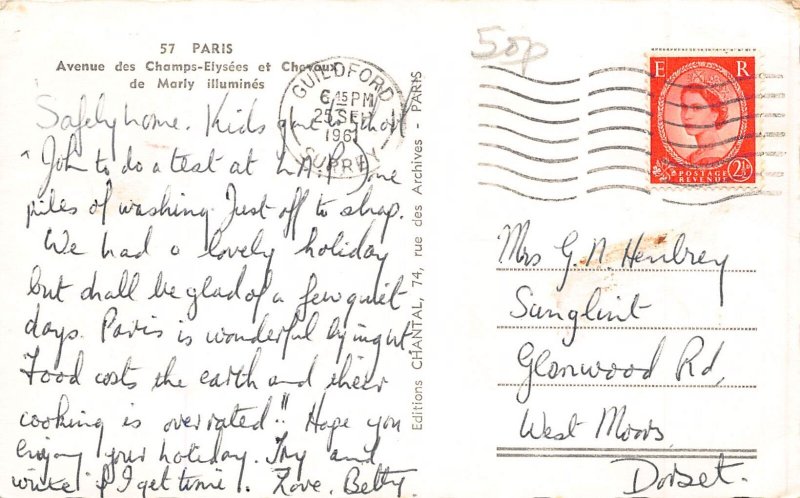 57 PARIS
Avenue des Champs-Elysées et Chevaux
de Marly illuminés
Safely home. Kids gone to school
John to do a test at
piles of washing. Just off to shop.
We had a lovely holiday
but shall be glad of a few quiet
days. Paris is wonderful by night
Food costs the earth and their
cooking is overrated!! Hope you
enjoy your holiday. Try and
write if I get time. Love, Betty
Editions CHANTAL, 74, rue des Archives - PARIS
GUILDFORD
6 45 PM
25 SEP
196
SURREY
50p
E R
2½D
POSTAGE
REVENUE
Mrs G. N. Henbrey
Sunglint
Glenwood Rd,
West Moors,
Dorset.